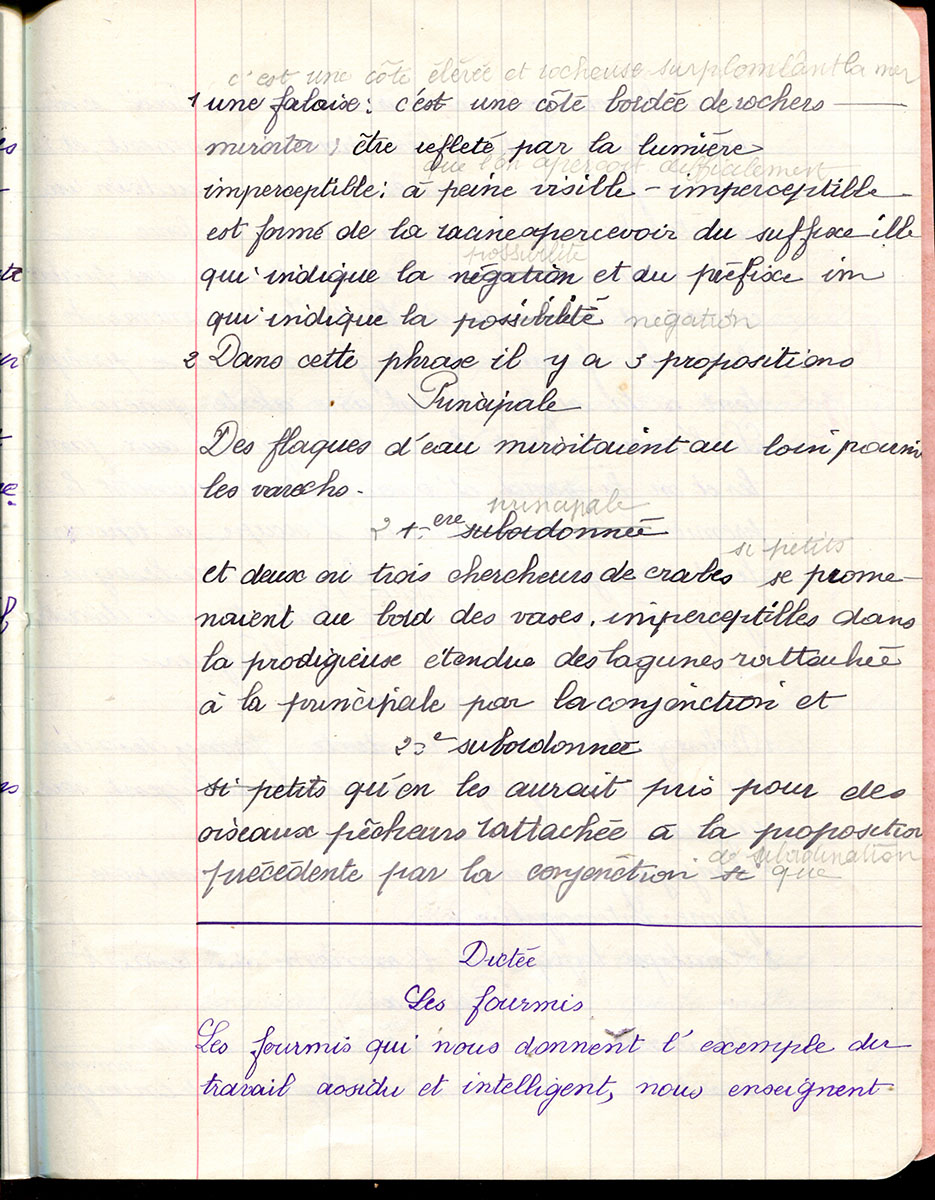 c'est une côte élévée et rocheuse surplombant la mer
1 une falaise : c'est une côte bordée de rochers
miroiter : être refleté par la lumière
que l'on aperçoit difficilement
imperceptible : à peine visible - imperceptible
est formé de la racine apercevoir du suffixe ille
possibilité
qui indique la négation et du préfixe im
qui indique la possibilité négation
2 Dans cette phrase il y a 3 propositions
Principale
Des flaques d'eau miroitaient au loin parmi
les varechs.
principale
2 1ère subordonnée
si petits
et deux ou trois chercheurs de crabes se prome-
naient au bord des vases, imperceptibles dans
la prodigieuse étendue des lagunes rattachée
à la principale par la conjonction et
2e subordonnée
si petits qu'on les aurait pris pour des
oiseaux pêcheurs rattachée à la proposition
de subordination
précédente par la conjonction si que
Dictée
Les fourmis
Les fourmis qui nous donnent l'exemple du
travail assidu et intelligent, nous enseignent